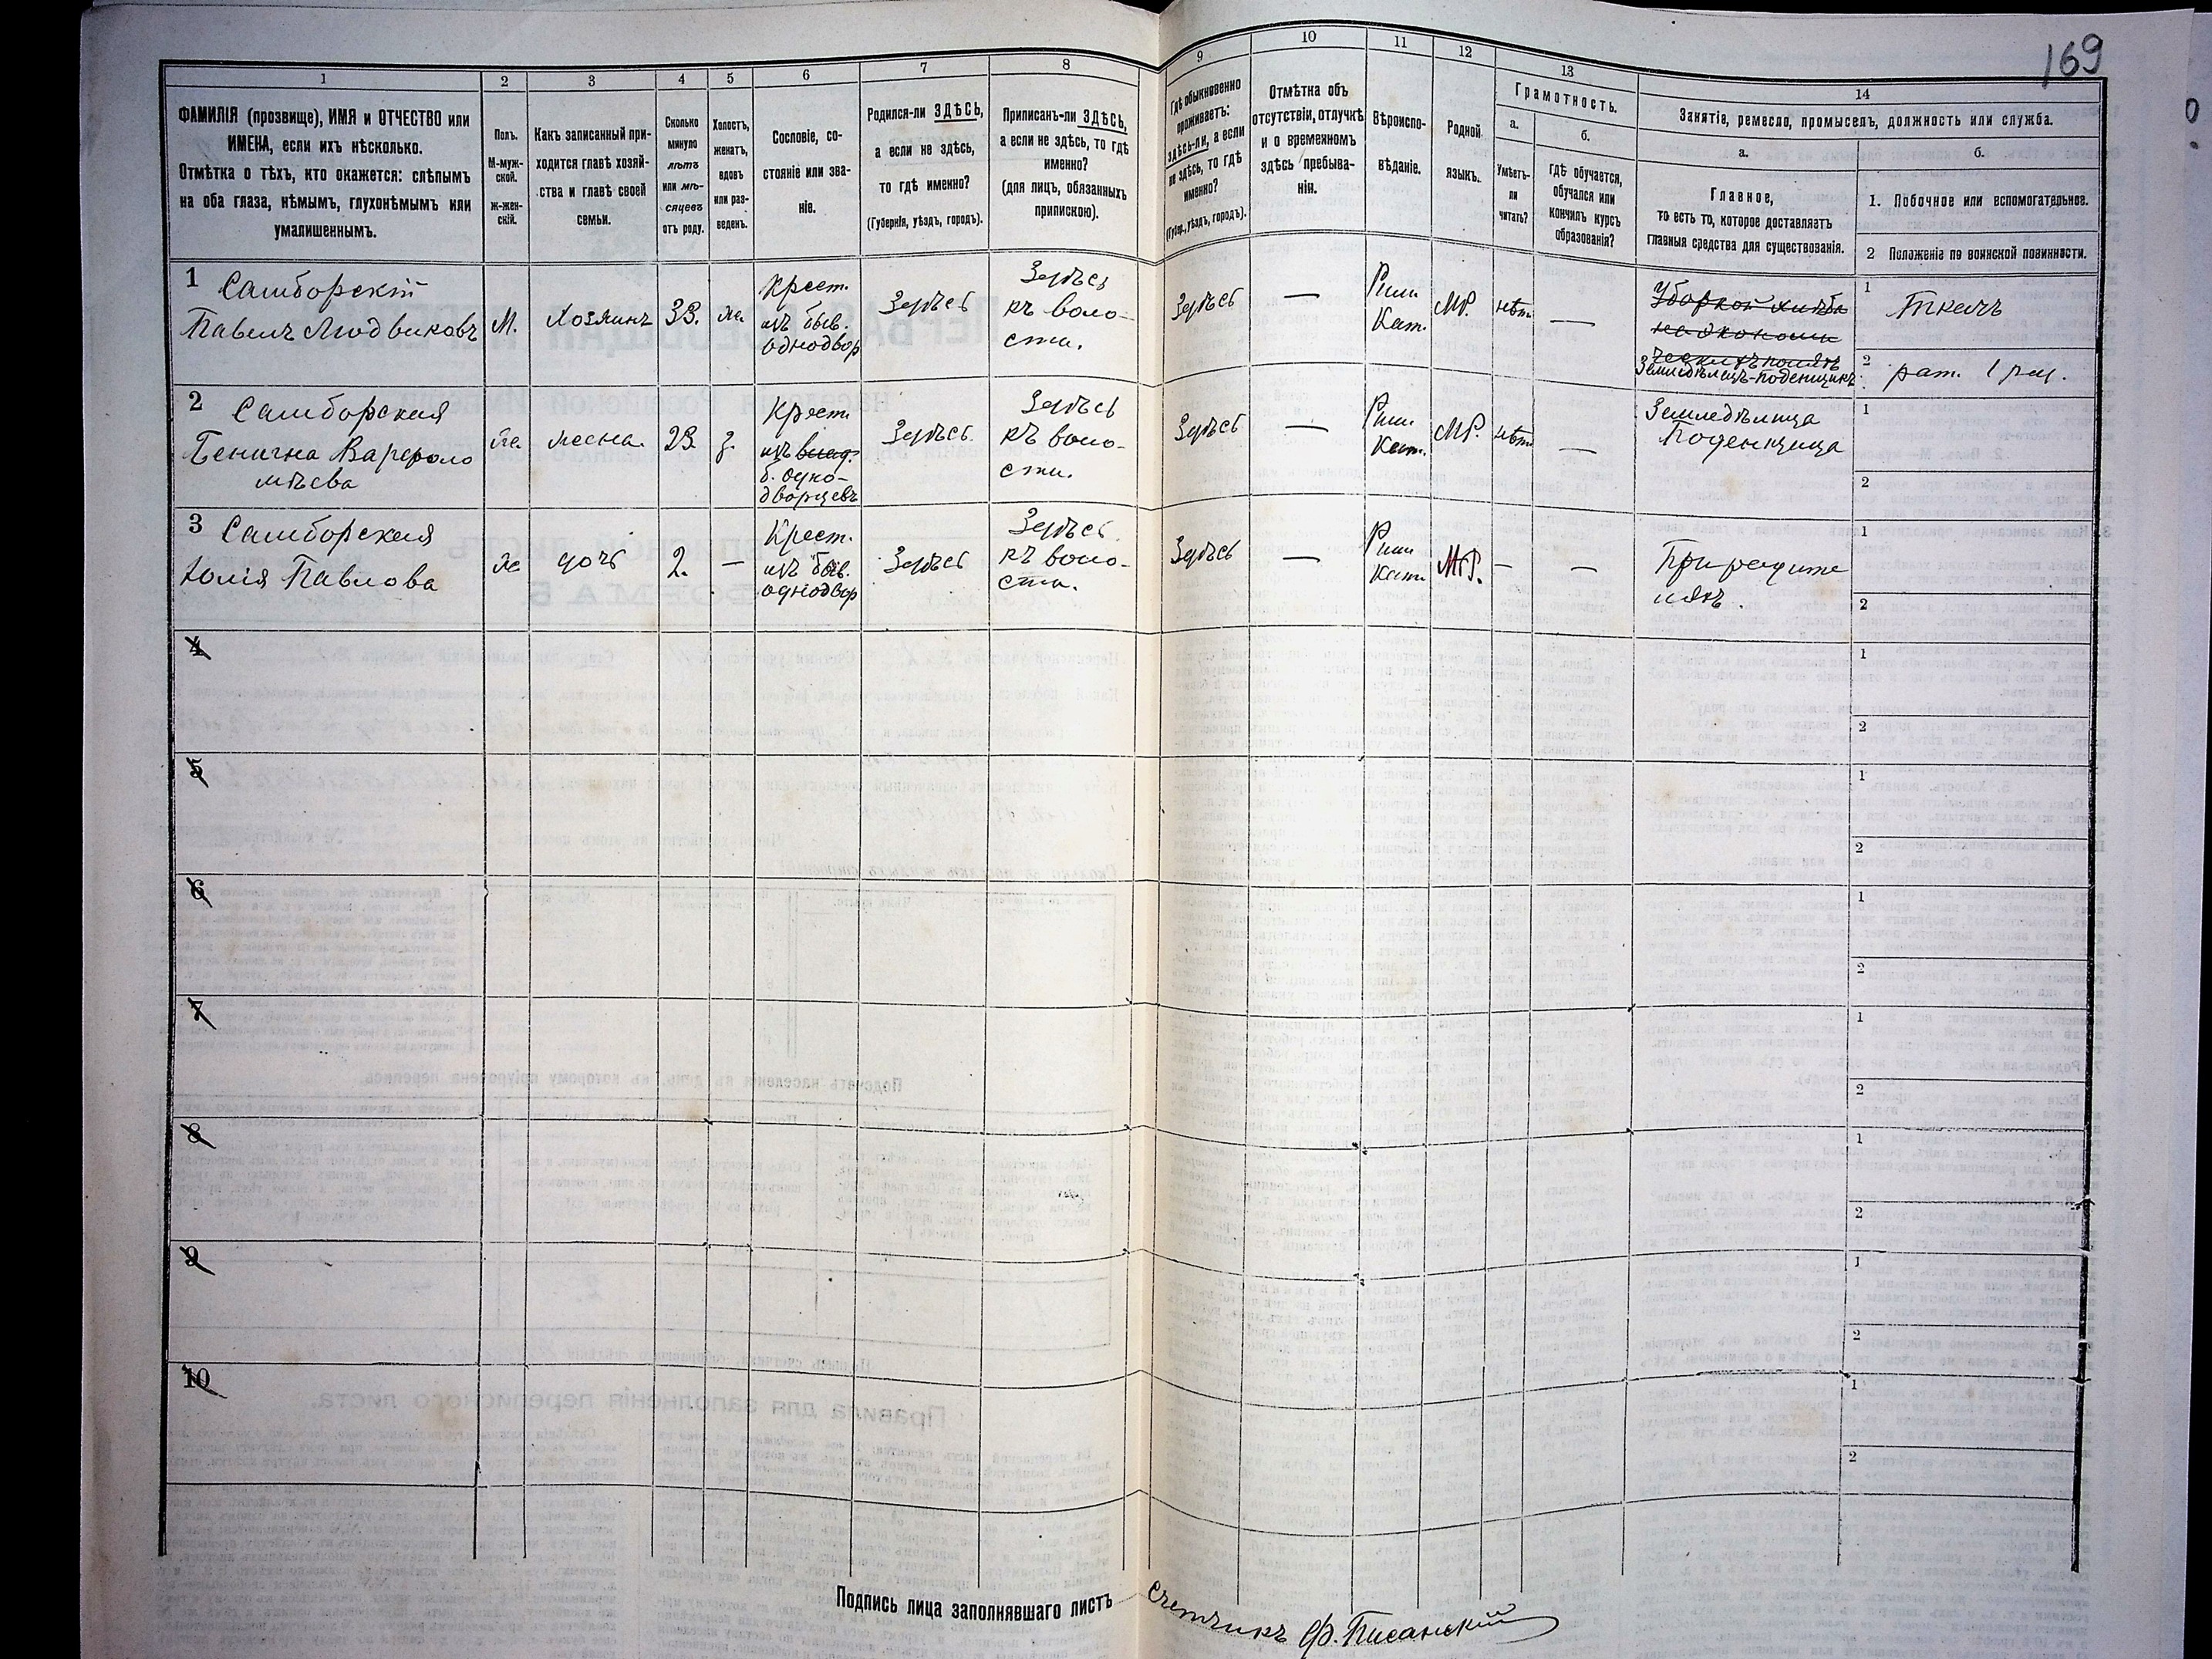 169
1
2
3
4
5
6
7
8
9
10
11
12
13
14
ФАМИЛІЯ (прозвище), ИМЯ и ОТЧЕСТВО или
ИМЕНА, если ихъ нѣсколько.
Отмѣтка о тѣхъ, кто окажется: слѣпымъ
на оба глаза, нѣмымъ, глухонѣмымъ или
умалишеннымъ.
Полъ.
М-муж-
ской.
ж-жен-
скій.
Какъ записанный при-
ходится главѣ хозяй-
ства и главѣ своей
семьи.
Сколько
минуло
лѣтъ
или мѣ-
сяцевъ
отъ роду.
Холостъ,
женатъ,
вдовъ
или раз-
веденъ.
Сословіе, со-
стояніе или зва-
ніе.
Родился-ли ЗДѢСЬ,
а если не здѣсь,
то гдѣ именно?
(Губернія, уѣздъ, городъ).
Приписанъ-ли ЗДѢСЬ,
а если не здѣсь, то гдѣ
именно?
(для лицъ, обязанныхъ
припискою).
Гдѣ обыкновенно
проживаетъ:
здѣсь-ли, а если
не здѣсь, то гдѣ
именно?
(Губер., уѣздъ, городъ).
Отмѣтка объ
отсутствіи, отлучкѣ
и о временномъ
здѣсь пребыва-
ніи.
Вѣроиспо-
вѣданіе.
Родной
языкъ.
Грамотность.
а.
Умѣетъ-
ли
читать?
б.
Гдѣ обучается,
обучался или
кончилъ курсъ
образованія?
Занятіе, ремесло, промыселъ, должность или служба.
а.
Главное,
то есть то, которое доставляетъ
главныя средства для существованія.
б.
1. Побочное или вспомогательное.
2 Положеніе по воинской повинности.
1 Самборскій
Павелъ Людвиковъ
М.
Хозяинъ
33.
же.
Крест.
изъ быв.
однодвор
Здѣсь
Здѣсь
къ воло-
сти.
Здѣсь
—
Рим.
Кат.
МР.
нѣтъ
—
Уборкой хлѣба
на экономи
ческихъ поляхъ
Земледѣлецъ-поденщикъ
1 Ткачъ
2 рат. 1 раз.
2 Самборская
Бенигна Варфоло
мѣева
же
жена.
23.
з.
Крест.
изъ
б. одно-
дворцевъ
Здѣсь.
Здѣсь
къ воло-
сти.
Здѣсь
—
Рим.
Кат.
МР.
нѣтъ
—
Земледѣлица
Поденщица
1
2
3 Самборская
Юлія Павлова
же
дочь
2.
—
Крест.
изъ быв.
однодвор
Здѣсь
Здѣсь
къ воло-
сти.
Здѣсь
—
Рим
Кат.
МР.
—
—
При родите
ляхъ.
1
2
4
1
2
5
1
2
6
1
2
7
1
2
8
1
2
9
1
2
10
1
2
Подпись лица заполнявшаго листъ Счетчикъ Ф. Писанскій